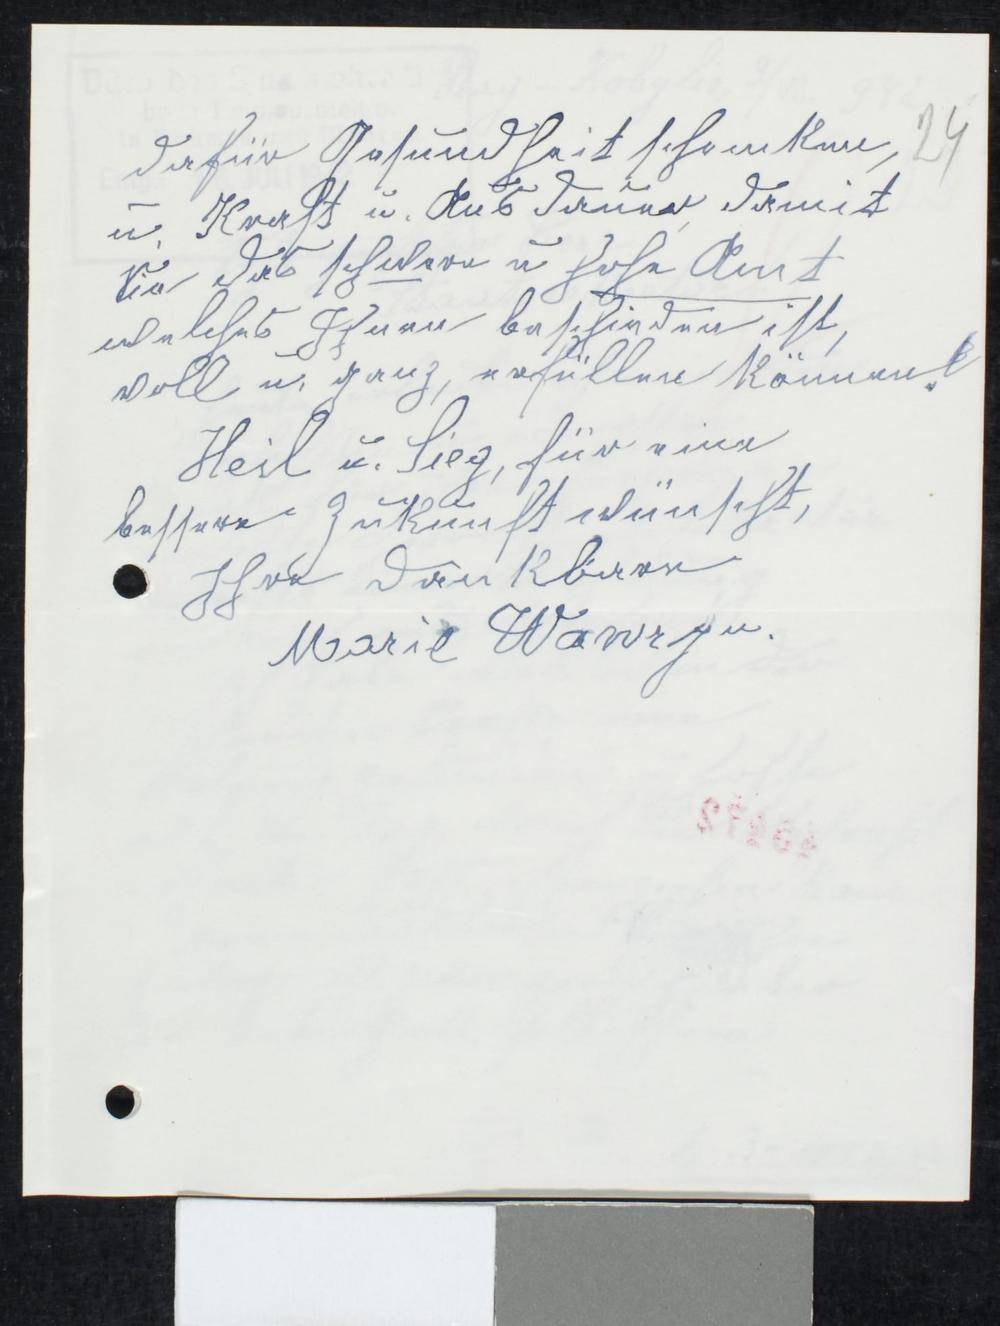 24
dafür Gesundheit schenken,
u. Kraft u. Ausdauer, damit
Sie das schwere u hohe Amt
welches Ihnen beschieden ist,
voll u. ganz, erfüllen können!
Heil u. Sieg, für eine
bessere Zukunft wünscht,
Ihre dankbare
Marie Wawryn.